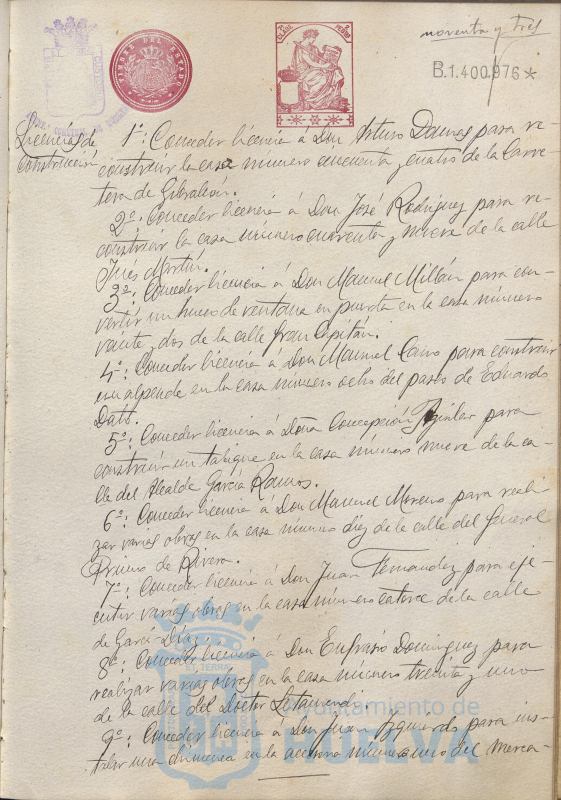 noventa y tres
B.1.400.976*
TIMBRE DEL ESTADO
CLASE
PESOS
Licencias de
Construcción
1º: Conceder licencia á Don Arturo Damas para re-
construir la casa número cincuenta y cuatro de la Carre-
tera de Gibraleón.
2º: Conceder licencia á Don José Rodriguez para re-
construir la casa número cuarenta y nueve de la calle
Ines Martín.
3º: Conceder licencia á Don Manuel Millán para con-
vertir un hueco de ventana en puerta en la casa número
veinte y dos de la calle Gran Capitán.
4º: Conceder licencia á Don Manuel Cano para construir
un alpende en la casa número ocho del paseo de Eduardo
Dato.
5º: Conceder licencia á Doña Concepción Aguilar para
construir un tabique en la casa número nueve de la ca-
lle del Alcalde García Ramos.
6º: Conceder licencia á Don Manuel Moreno para reali-
zar varias obras en la casa número diez de la calle del General
Primo de Rivera.
7º: Conceder licencia á Don Juan Fernandez para eje-
cutar varias obras en la casa número catorce de la calle
de Garci Díaz.
8º: Conceder licencia á Don Eufrasio Dominguez para
realizar varias obras en la casa número treinta y uno
de la calle del Doctor Letamendi.
Ayuntamiento de
HUELVA
9º: Conceder licencia á Don Juan Izquierdo para ins-
talar una chimenea en la accesoria número uno del merca-